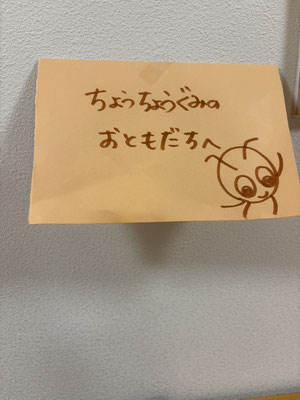 ちょうちょうぐみの
おともだちへ